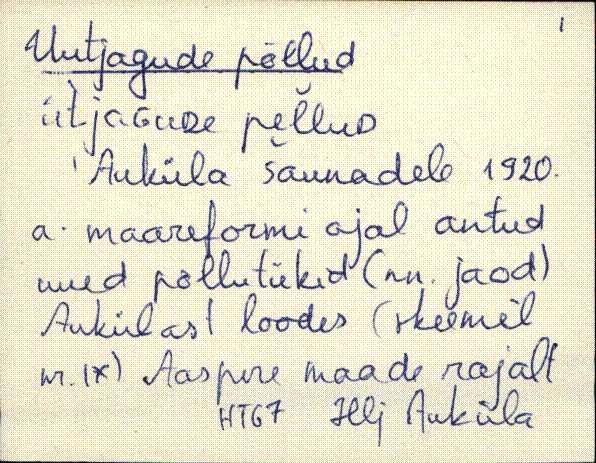 1
Uutjagude põllud
ùtjaguDe pèlluD
Auküla saunadele 1920.
a. maareformi ajal antud
uued põllutükid (nn. jaod)
Aukülast loodes (skeemil
nr. IX) Aaspere maade rajalt
HT67 Hlj Auküla